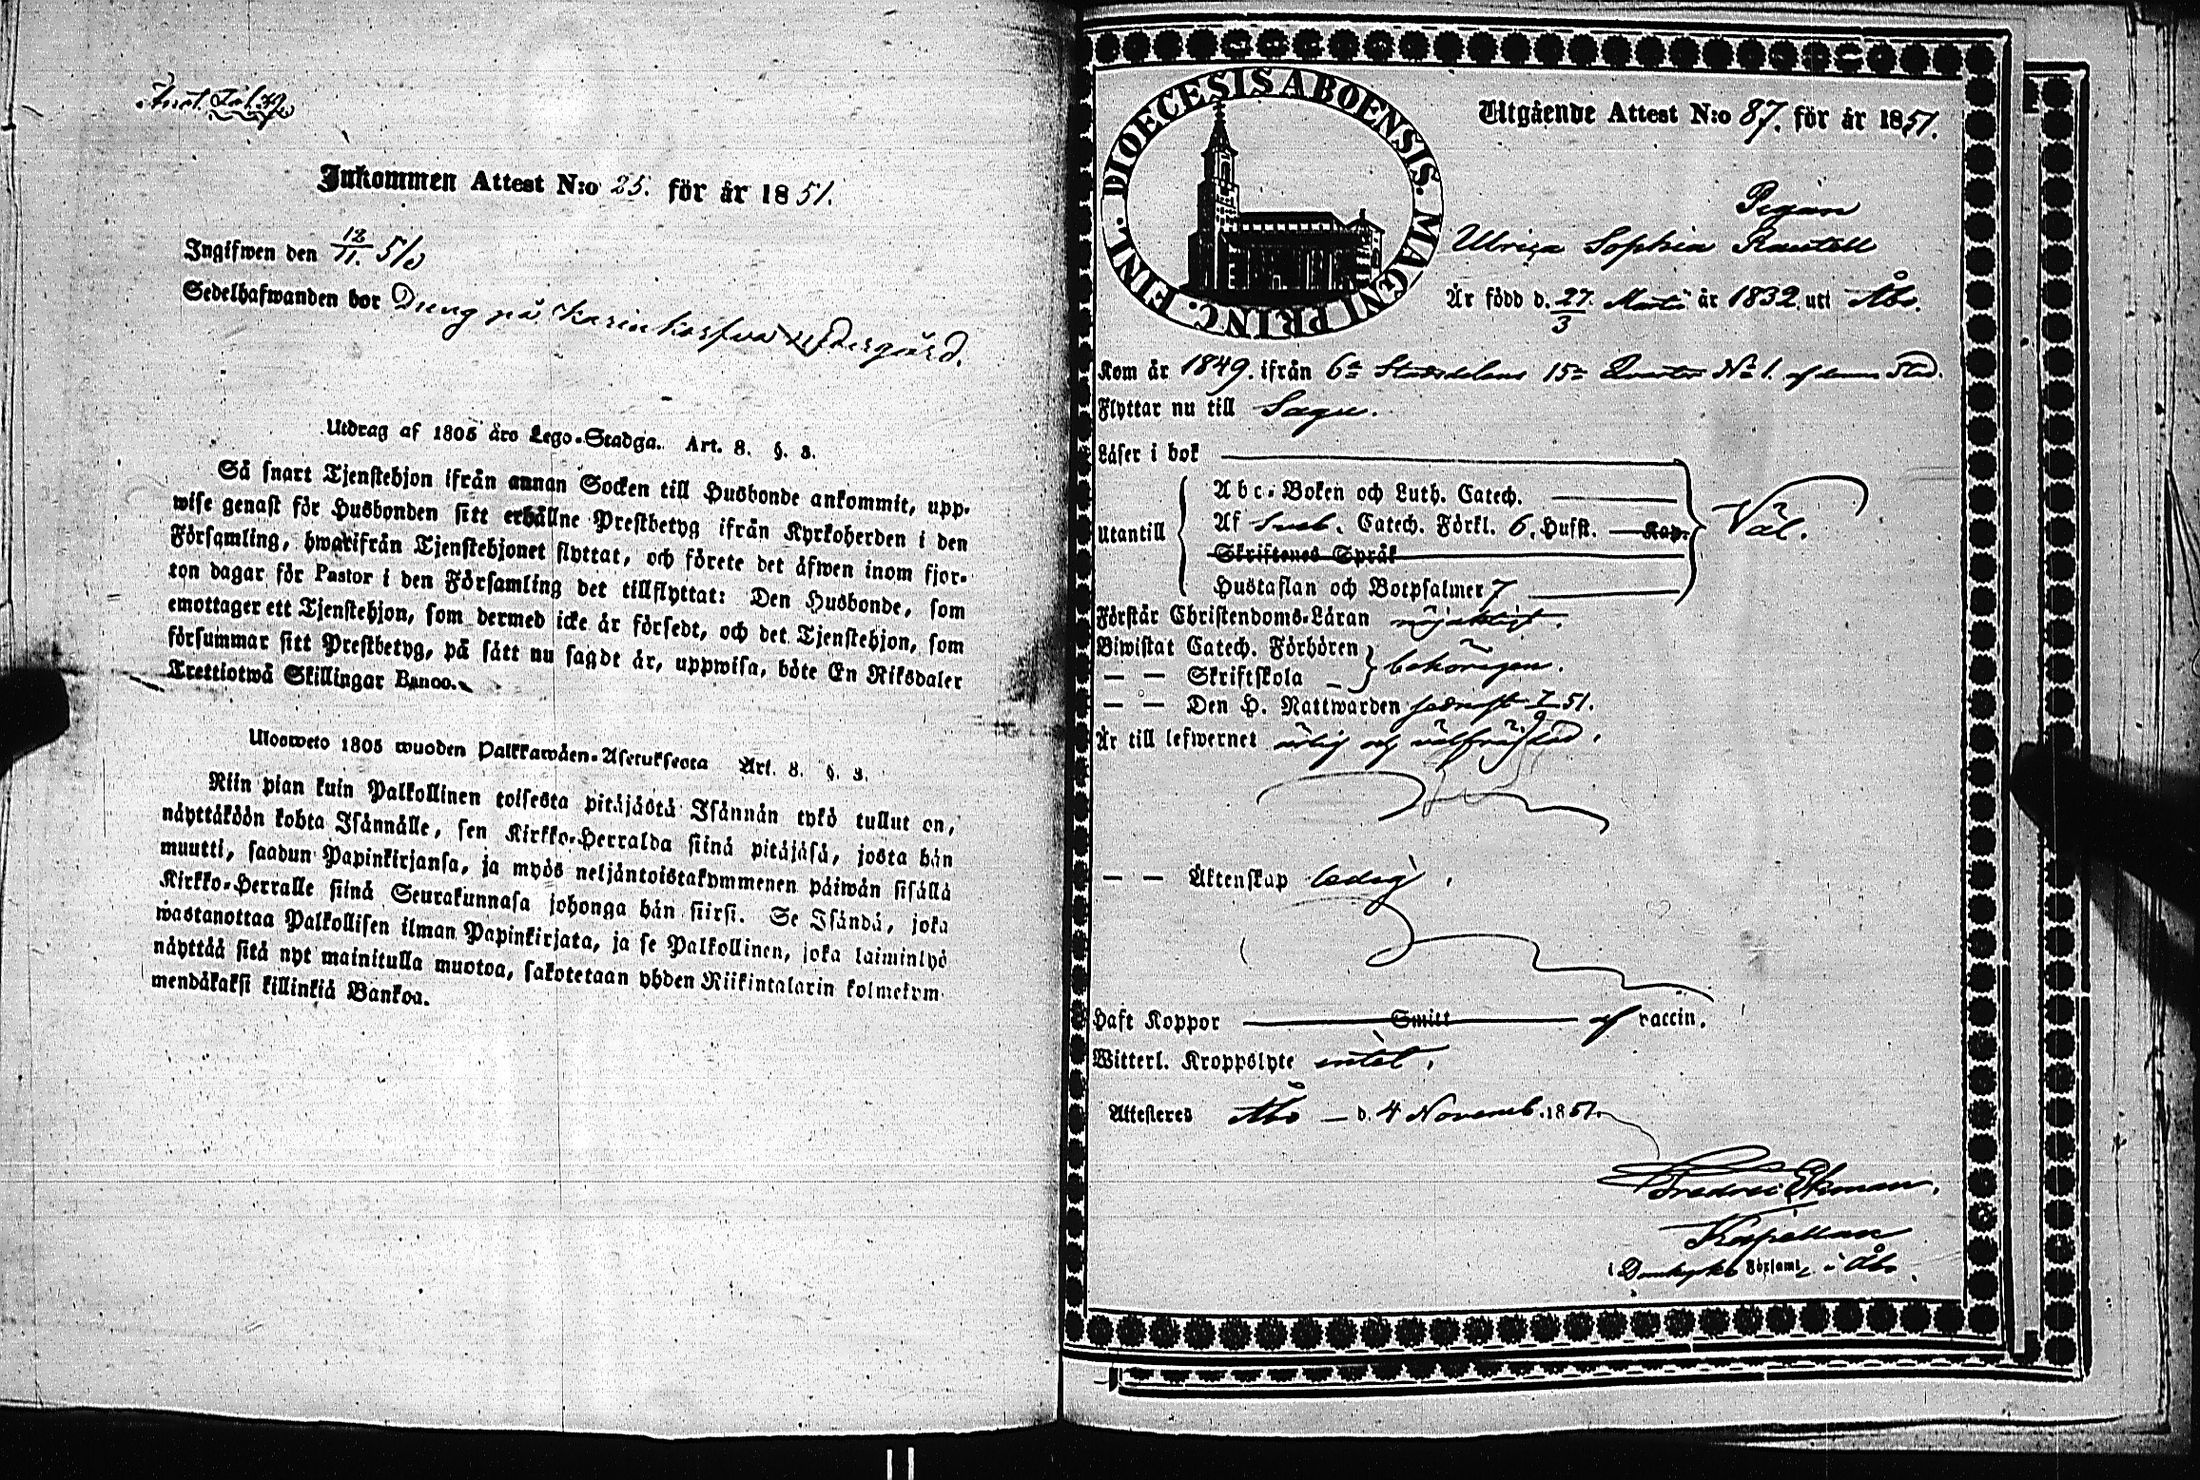 Inkommen Attest N:o 25. för år 1851.
Ingifwen den 12/11. 51
Sedelhafwanden bor Dreng på Karinkorfwa
Utdrag af 1805 års Lego-Stadga. Art. 8. §. 3.
Så snart Tjenstehjon ifrån annan Socken till Husbonde ankommit, upp-
wise genast för Husbonden sitt erhållne Prestbetyg ifrån Kyrkoherden i den
Församling, hwarifrån Tjenstehjonet flyttat, och förete det äfwen inom fjor-
ton dagar för Pastor i den Församling det tillflyttat: Den Husbonde, som
emottager ett Tjenstehjon, som dermed icke är försedt, och det Tjenstehjon, som
försummar sitt Prestbetyg, på sätt nu sagdt är, uppwisa, böte En Riksdaler
Trettiotwå Skillingar Banco.
Ulosweto 1805 wuoden Palkkawäen-Asetuksesta Art. 8. §. 3.
Niin pian kuin Palkollinen toisesta pitäjästä Isännän tykö tullut on,
näyttäköön kohta Isännälle, sen Kirkko-Herralda siinä pitäjäsä, josta hän
muutti, saadun Papinkirjansa, ja myös neljäntoistakymmenen päiwän sisällä
Kirkko-Herralle siinä Seurakunnasa johonga hän siirsi. Se Isändä, joka
wastanottaa Palkollisen ilman Papinkirjata, ja se Palkollinen, joka laiminlyö
näyttää sitä nyt mainitulla muotoa, sakotetaan yhden Riikintalarin kolmekym-
mendäkaksi killinkiä Bankoa.
DIOECESIS ABOENSIS. MAGNI PRINC. FINL.
Utgående Attest N:o 87. för år 1851.
Pigan
Ulrica Sophia
Är född d. 27/3 Martii år 1832. uti Åbo.
Kom år 1849. ifrån 6te Stadsdelens 15de Quarter No 1. af denna Stad.
Flyttar nu till Sagu.
Läser i bok
Utantill
Abc-Boken och Luth. Catech.
Väl.
Af Sveb. Catech. Förkl. 6. Hufst. Kap.
Skriftenes Språk
Hustaflan och Botpsalmer 7
Förstår Christendoms-Läran nöjaktigt.
Biwistat Catech. Förhören
behörigen.
— — Skriftskola
— — Den H. Nattwarden sednast 51.
Är till lefwernet ärlig och välfräjdad.
— — Äktenskap ledig.
Haft Koppor Smitt af vaccin.
Witterl. Kroppslyte intet.
Attesteras Åbo — d. 4 Novemb. 1851.
Fredric Ekman.
Kapellan
i Domkyrko Församl. i Åbo.